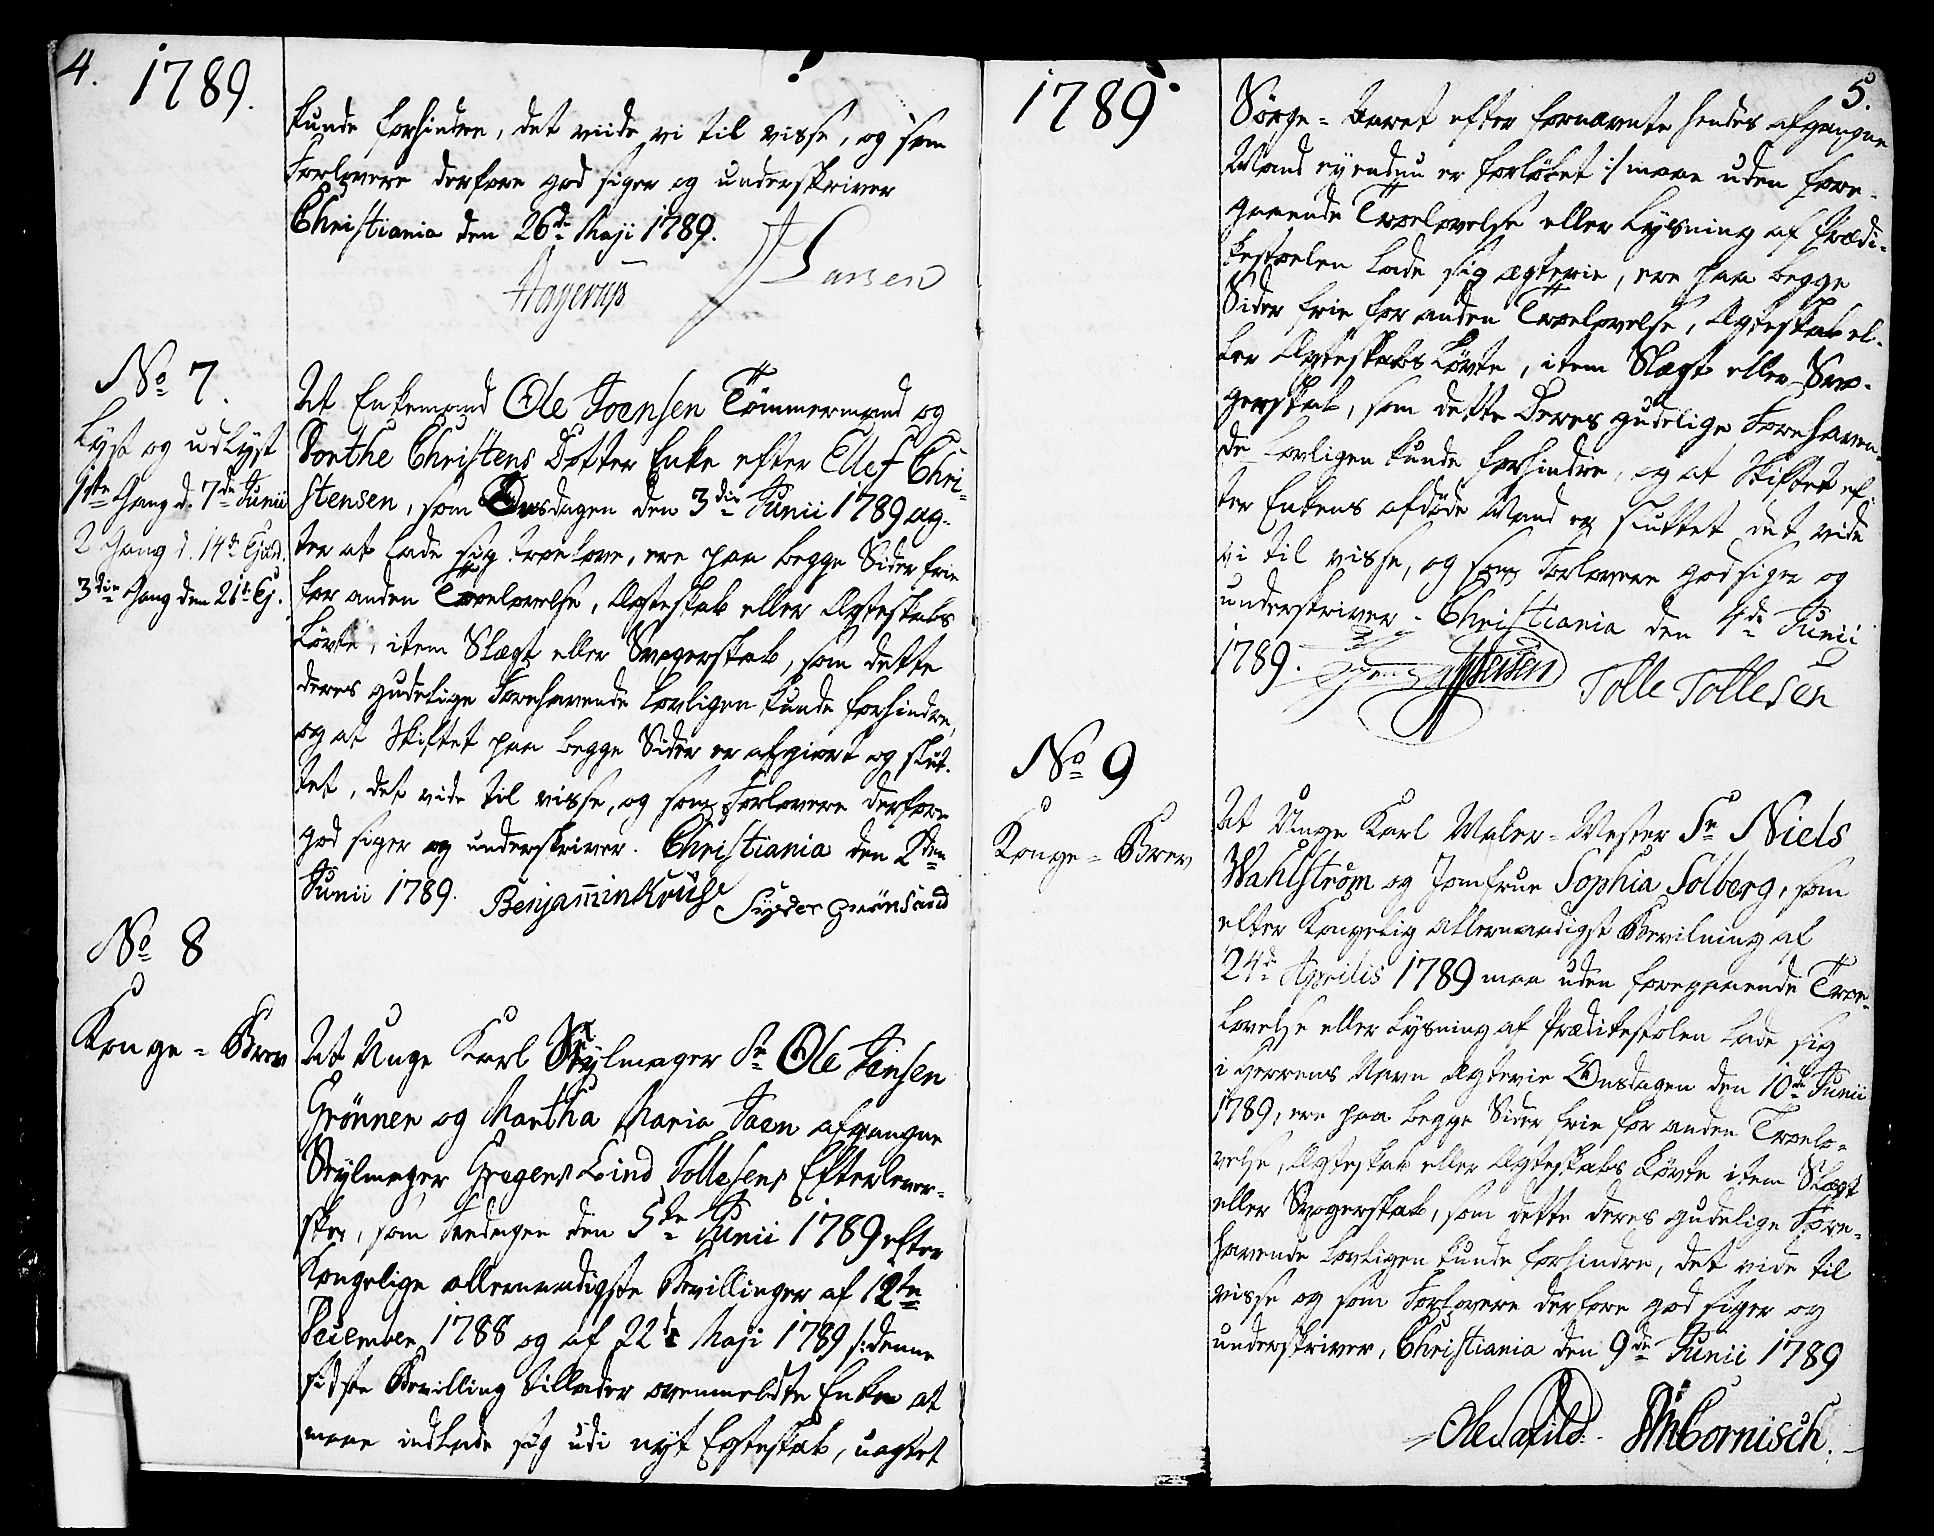 4.
1789.
kunde forhindre, det viide vi til visse, og som
Forlovere derfore god siger og underskriver
Christiania den 26de Maji 1789.
Hagerup Larsen
No 7.
Lyst og udlyst
1ste Gang d. 7de Junii
2 Gang d. 14de Ejusd.
3die Gang den 21de Ej.
At Enkemand Ole Joensen Tömmermand og
Dorthe Christens Dotter Enke efter Ellef Chri-
stensen, som Onsdagen den 3die Junii 1789 ag-
ter at lade sig troelove, ere paa begge Sider frie
for anden Troelovelse, Ægteskab eller Ægteskabs
Lövte, item Slægt eller Svogerskab, som dette
deres gudelige Forehavende lovligen kunde forhindre,
og at Skiftet paa begge Sider er afgiort og slut-
tet, det vide til visse, og som Forlovere derfore
god siger og underskriver. Christiania den 2den
Junii 1789. Benjamin Kruse Syver Grönsand
No 8
Konge-Brev
At Unge Karl Stylmager Sr Ole Jensen
Grönner og Martha Maria Saen afgangne
Stylmager Gregers Lind Tollesens Efterlever-
ske, som Fredagen den 5te Junii 1789 efter
Kongelige allernaadigste Bevillinger af 12te
December 1788 og af 22de Maji 1789 /:denne
sidste Bevilling tillader ovenmeldte Enke at
maae indlade sig udi nyt Egteskab, uagtet
1789
5.
Sörge-Aaret efter fornævnte hendes afgangne
Mand eyendnu er forlöbet:/ maae uden fore-
gaaende Troelovelse eller Lysning af Prædi-
kestoelen lade sig ægtevie, ere paa begge
Sider frie for anden Troelovelse, Ægteskab el-
ler Ægteskabs Lövte, item Slægt eller Svo-
gerskab, som dette Deres gudelige Forehaven-
de lovligen kunde forhindre, og at Skiftet ef-
ter Enkens afdöde Mand er sluttet det vide
vi til visse, og som Forlovere godsiger og
underskriver. Christiania den 4de Junii
1789. Tolle Tollesen
No 9
Konge-Brev
At Unge Karl Maler-Mester Sr Niels
Wahlström og Jomfrue Sophia Solberg, som
efter Kongelig allernaadigst Bevilning af
24de Aprilis 1789 maa uden foregaaende Troe-
lovelse eller Lysning af Prædikestolen lade sig
i Herrens Navn ægtevie Onsdagen den 10de Junii
1789, ere paa begge Sider frie for anden Troelo-
velse, Ægteskab eller Ægteskabs Lövte item Slægt
eller Svogerskab, som dette deres gudelige Fore-
havende lovligen kunde forhindre, det vide til
visse og som Forlovere derfore god siger og
underskriver, Christiania den 9de Junii 1789
Cornisch.